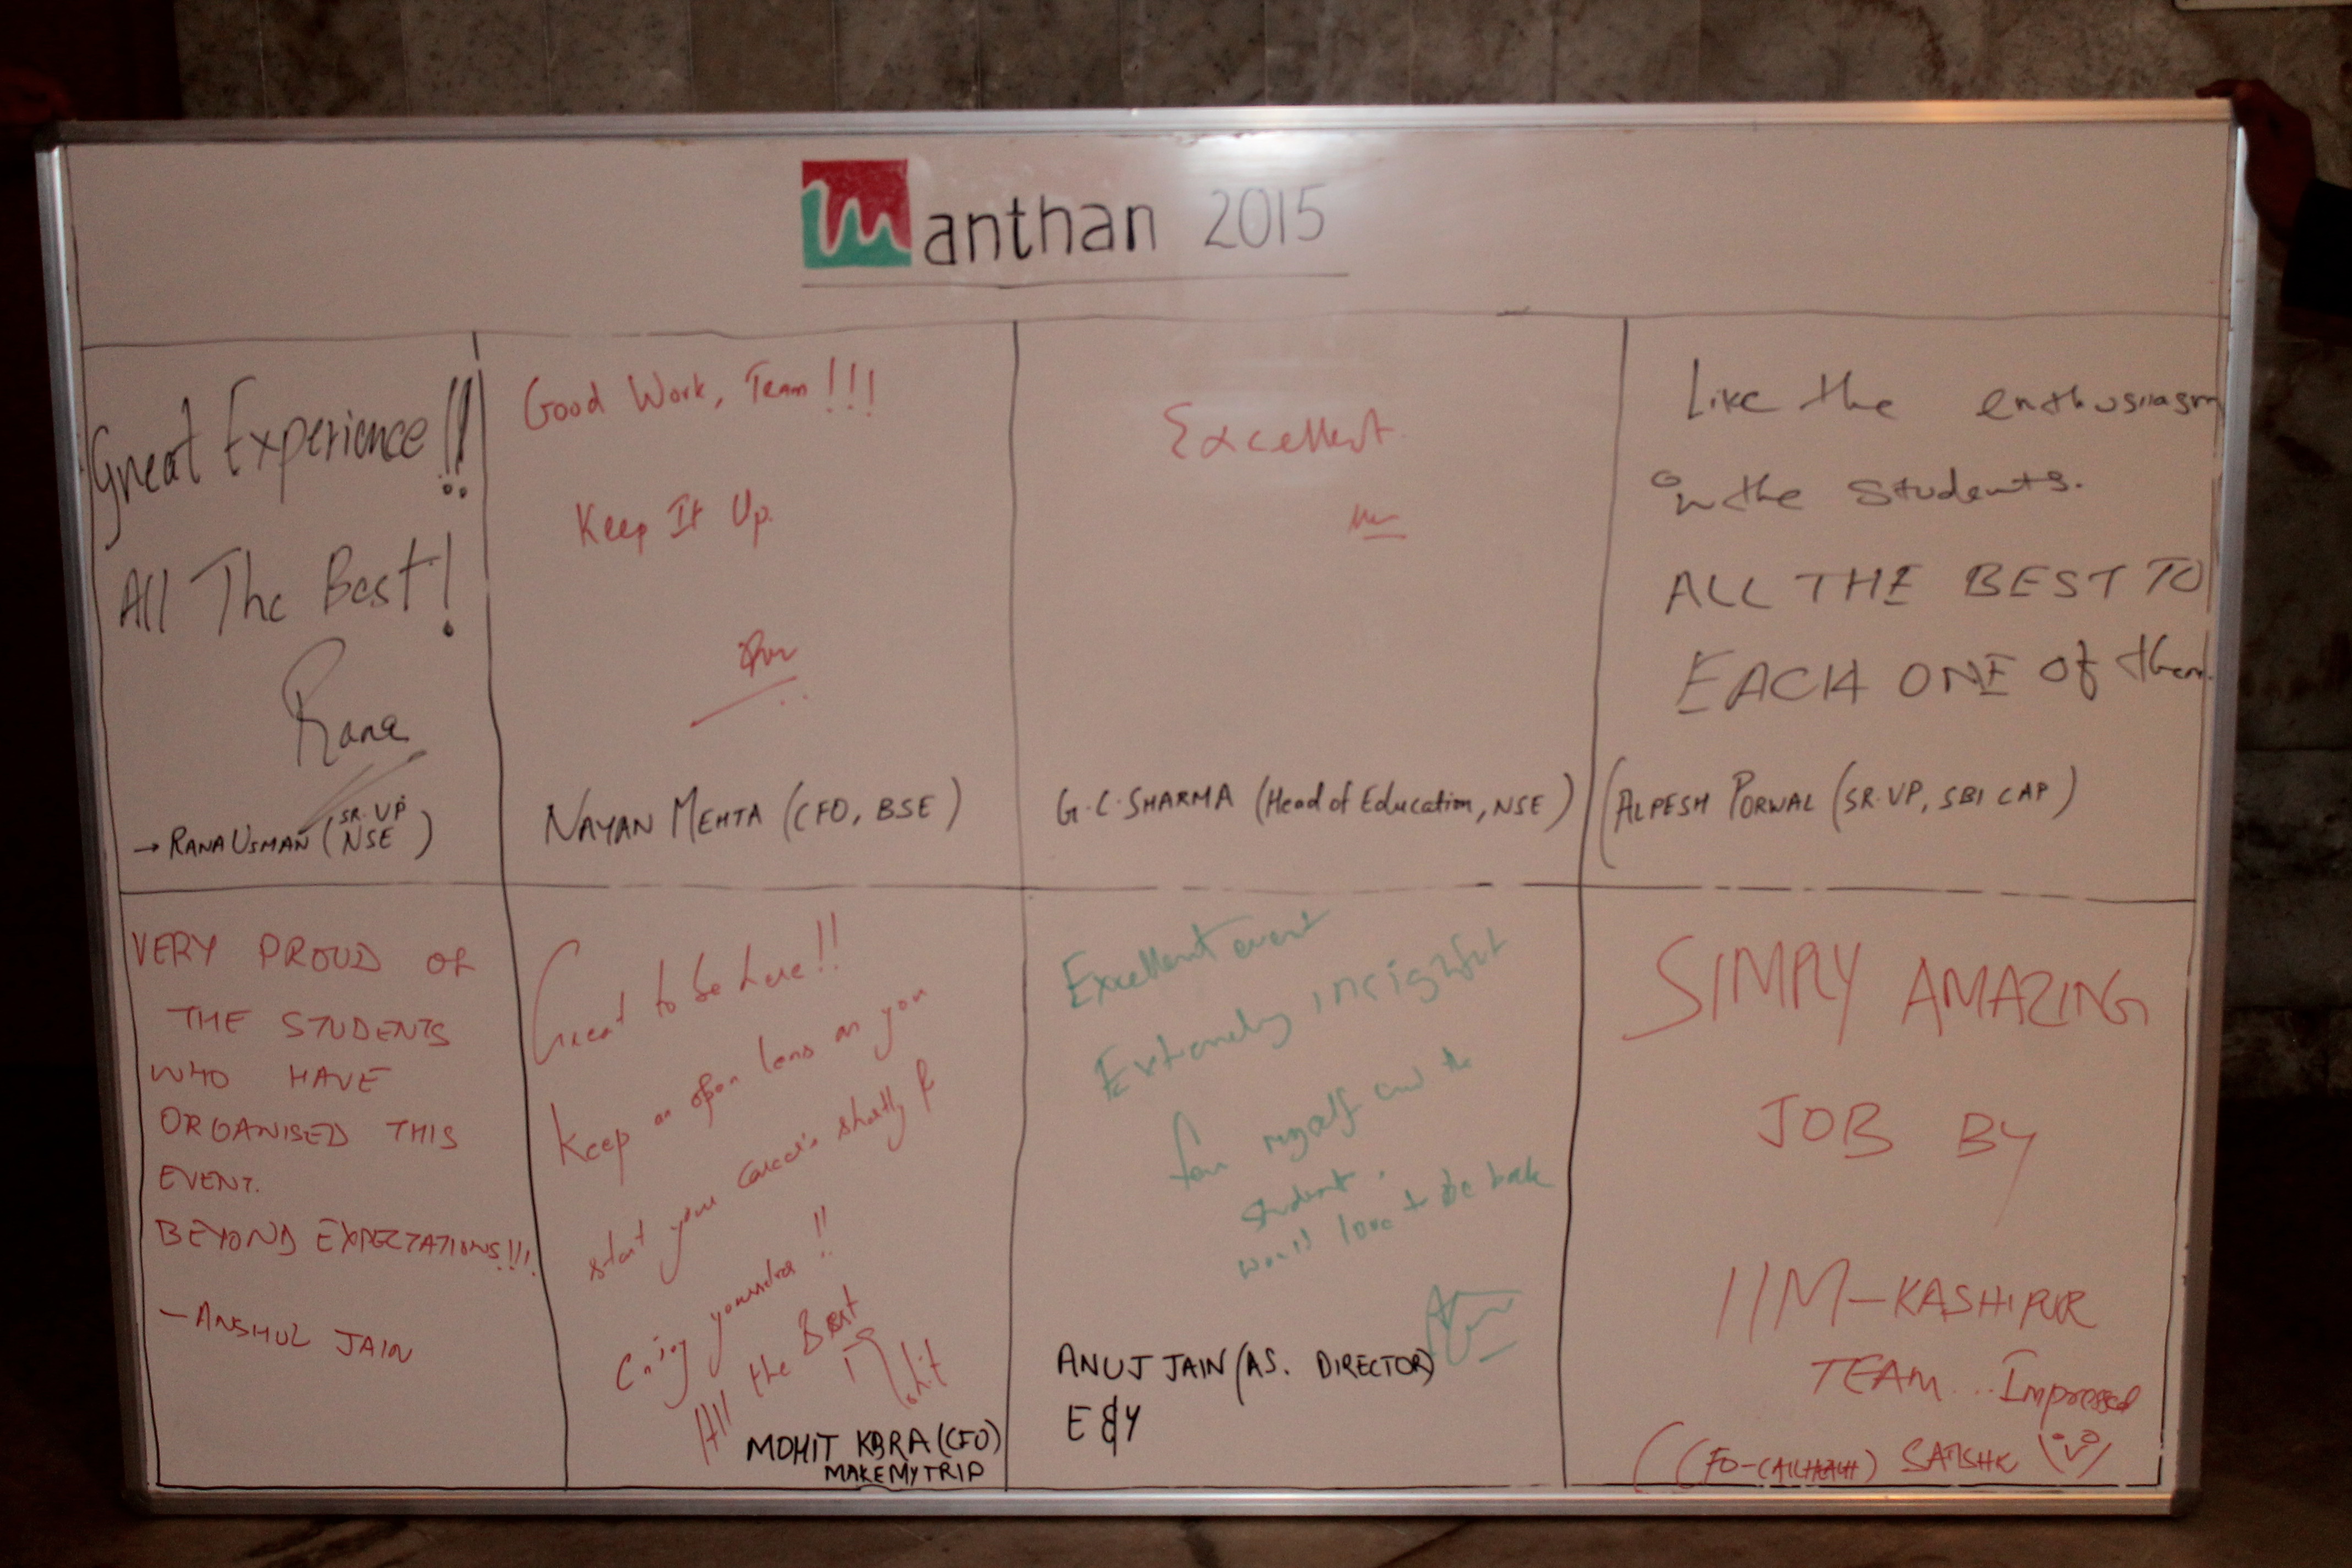 Manthan 2015
Great Experience!!
All The Best!
Rana
→ RANA USMAN (SR. VP NSE)
Good Work, Team!!!
Keep It Up.
NAYAN MEHTA (CFO, BSE)
Excellent
G.C. SHARMA (Head of Education, NSE)
Like the enthusiasm
in the students.
ALL THE BEST TO
EACH ONE of them.
(ALPESH PORWAL (SR. VP, SBI CAP)
VERY PROUD OF
THE STUDENTS
WHO HAVE
ORGANISED THIS
EVENT.
BEYOND EXPECTATIONS!!!
- ANSHUL JAIN
Great to be here!!
Keep an open lens as you
start your careers shortly &
Enjoy yourselves!!
All the Best
MOHIT KBRA (CFO)
MAKEMYTRIP
Excellent event
Extremely insightful
for myself and the
student.
would love to be back
ANUJ JAIN (AS. DIRECTOR)
E&Y
SIMPLY AMAZING
JOB BY
IIM-KASHIPUR
TEAM... Impressed
SATISHK